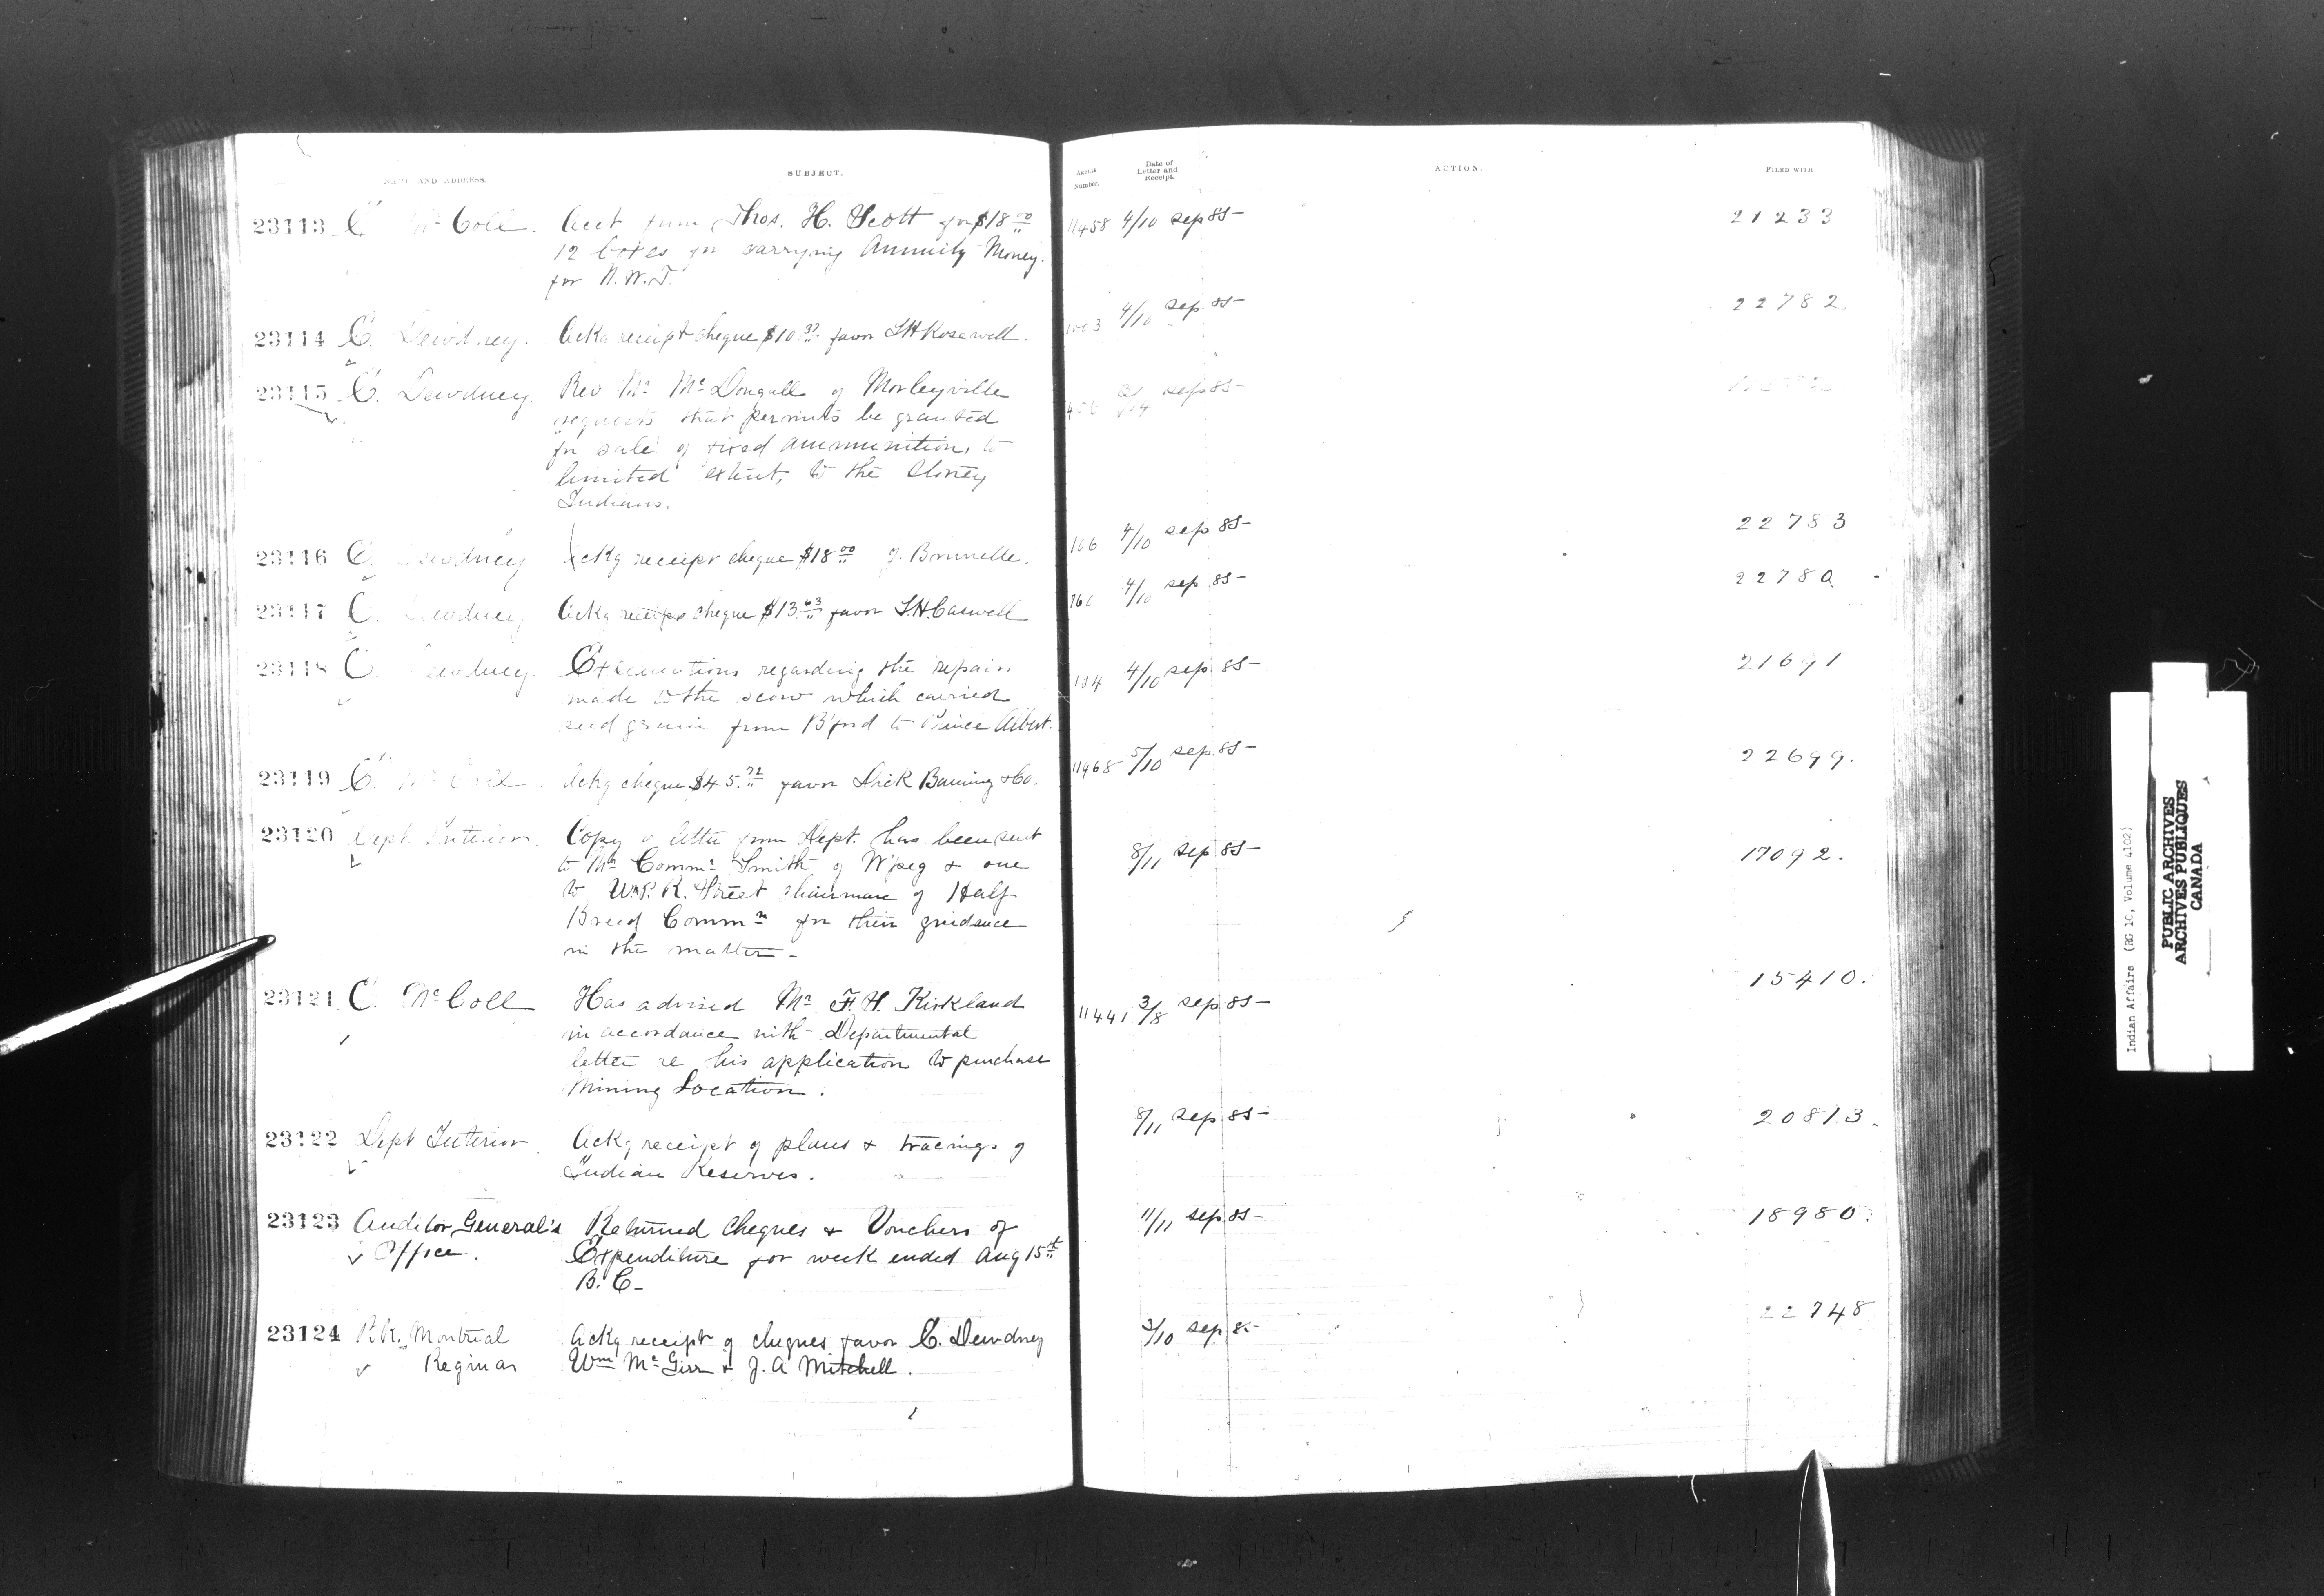 NAME AND ADDRESS.
SUBJECT.
Agents Number.
Date of Letter and Receipt.
ACTION.
FILED WITH
23113 E McColl. Acct from Thos. H. Scott for $18.00 11458 4/10 Sep 85 21233
12 boxes for carrying Annuity Money
for N.W.T.
23114 E. Dewdney. Ackg receipt cheque $10.37 favor 4/10 Sep. 85 22782
23115 E. Dewdney. Rev Mr McDougall of Morleyville Sep 85
requests that permits be granted
for sale of fixed ammunition, to
limited extent, to the Stoney
Indians.
23116 E. Dewdney. Ackg receipt cheque $18.00 J. Brunelle. 4/10 Sep 85 22783
23117 E. Dewdney Ackg receipt cheque $13.63 favor S.H. Caswell 4/10 Sep. 85 22780
23118 E. Dewdney. regarding the repairs 4/10 Sep. 85 21691
made to the scow which carried
seed grain from B'ford to Prince Albert.
23119 E. McColl Ackg cheque $45.72 favor Dick Banning & Co. 11468 5/10 Sep. 85 22699.
23120 Dept. Interior. Copy of letter from Dept. has been sent 8/11 Sep 85 17092.
to Mr Commr Smith of W'peg & one
to W.P.R. Street Chairman of Half
Breed Commn for their guidance
in the matter
23121 E. McColl Has advised Mr F.H. Kirkland 11441 3/8 Sep. 85 15410.
in accordance with Departmental
letter re his application to purchase
Mining Location.
23122 Dept Interior Ackg receipt of plans & tracings of 8/11 Sep. 85 20813.
Indian Reserves.
23123 Auditor General's Returned cheques & Vouchers of 11/11 Sep. 85 18980.
Office. Expenditure for week ended Aug 15th
B.C.
23124 Bk. Montreal Ackg receipt of cheques favor E. Dewdney 3/10 Sep. 85 22748
Regina Wm McGirr & J.A Mitchell.
Indian Affairs (RG 10, Volume 4102)
PUBLIC ARCHIVES
ARCHIVES PUBLIQUES
CANADA